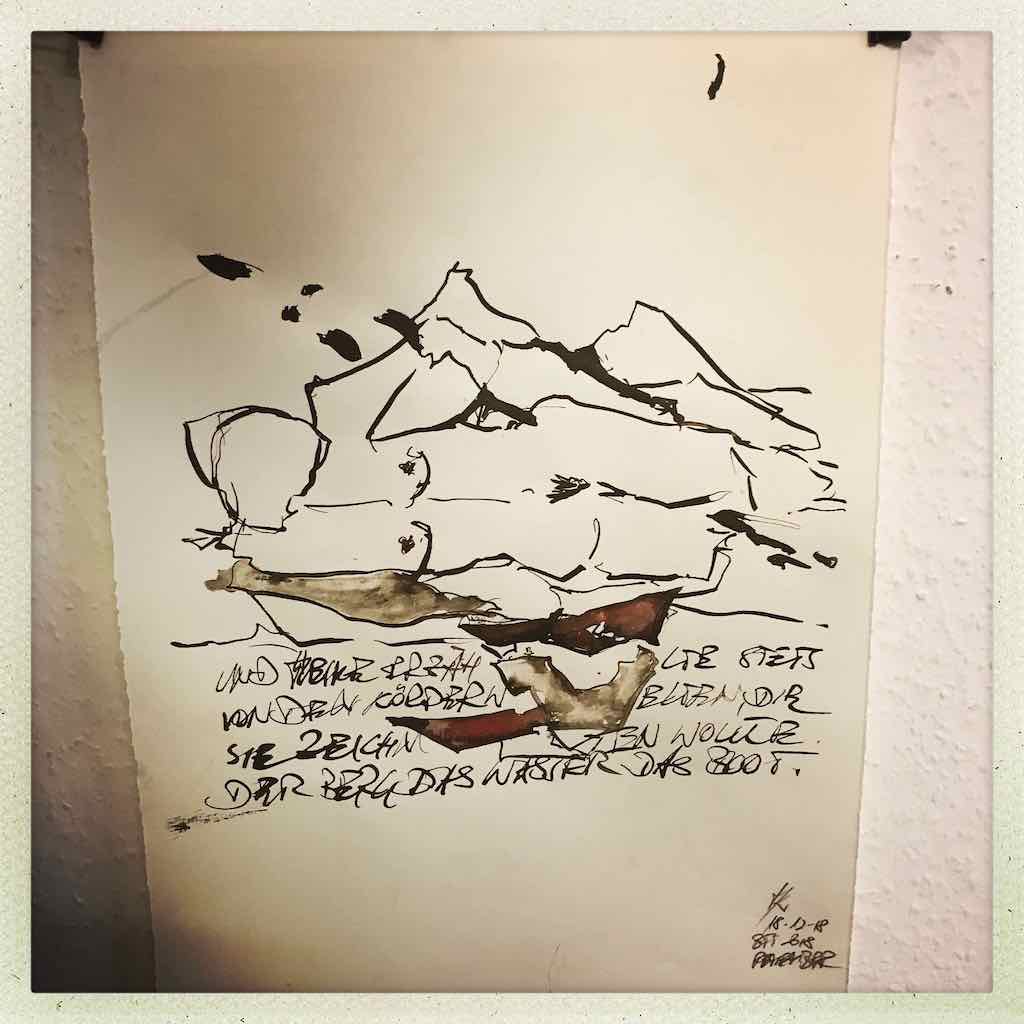 UND ERZÄHLTE STETS
VON DEN KÖRPERN DIE
SIE ZEICHNEN WOLLTE.
DER BERG DAS WASSER DAS BOOT.
18-12-18